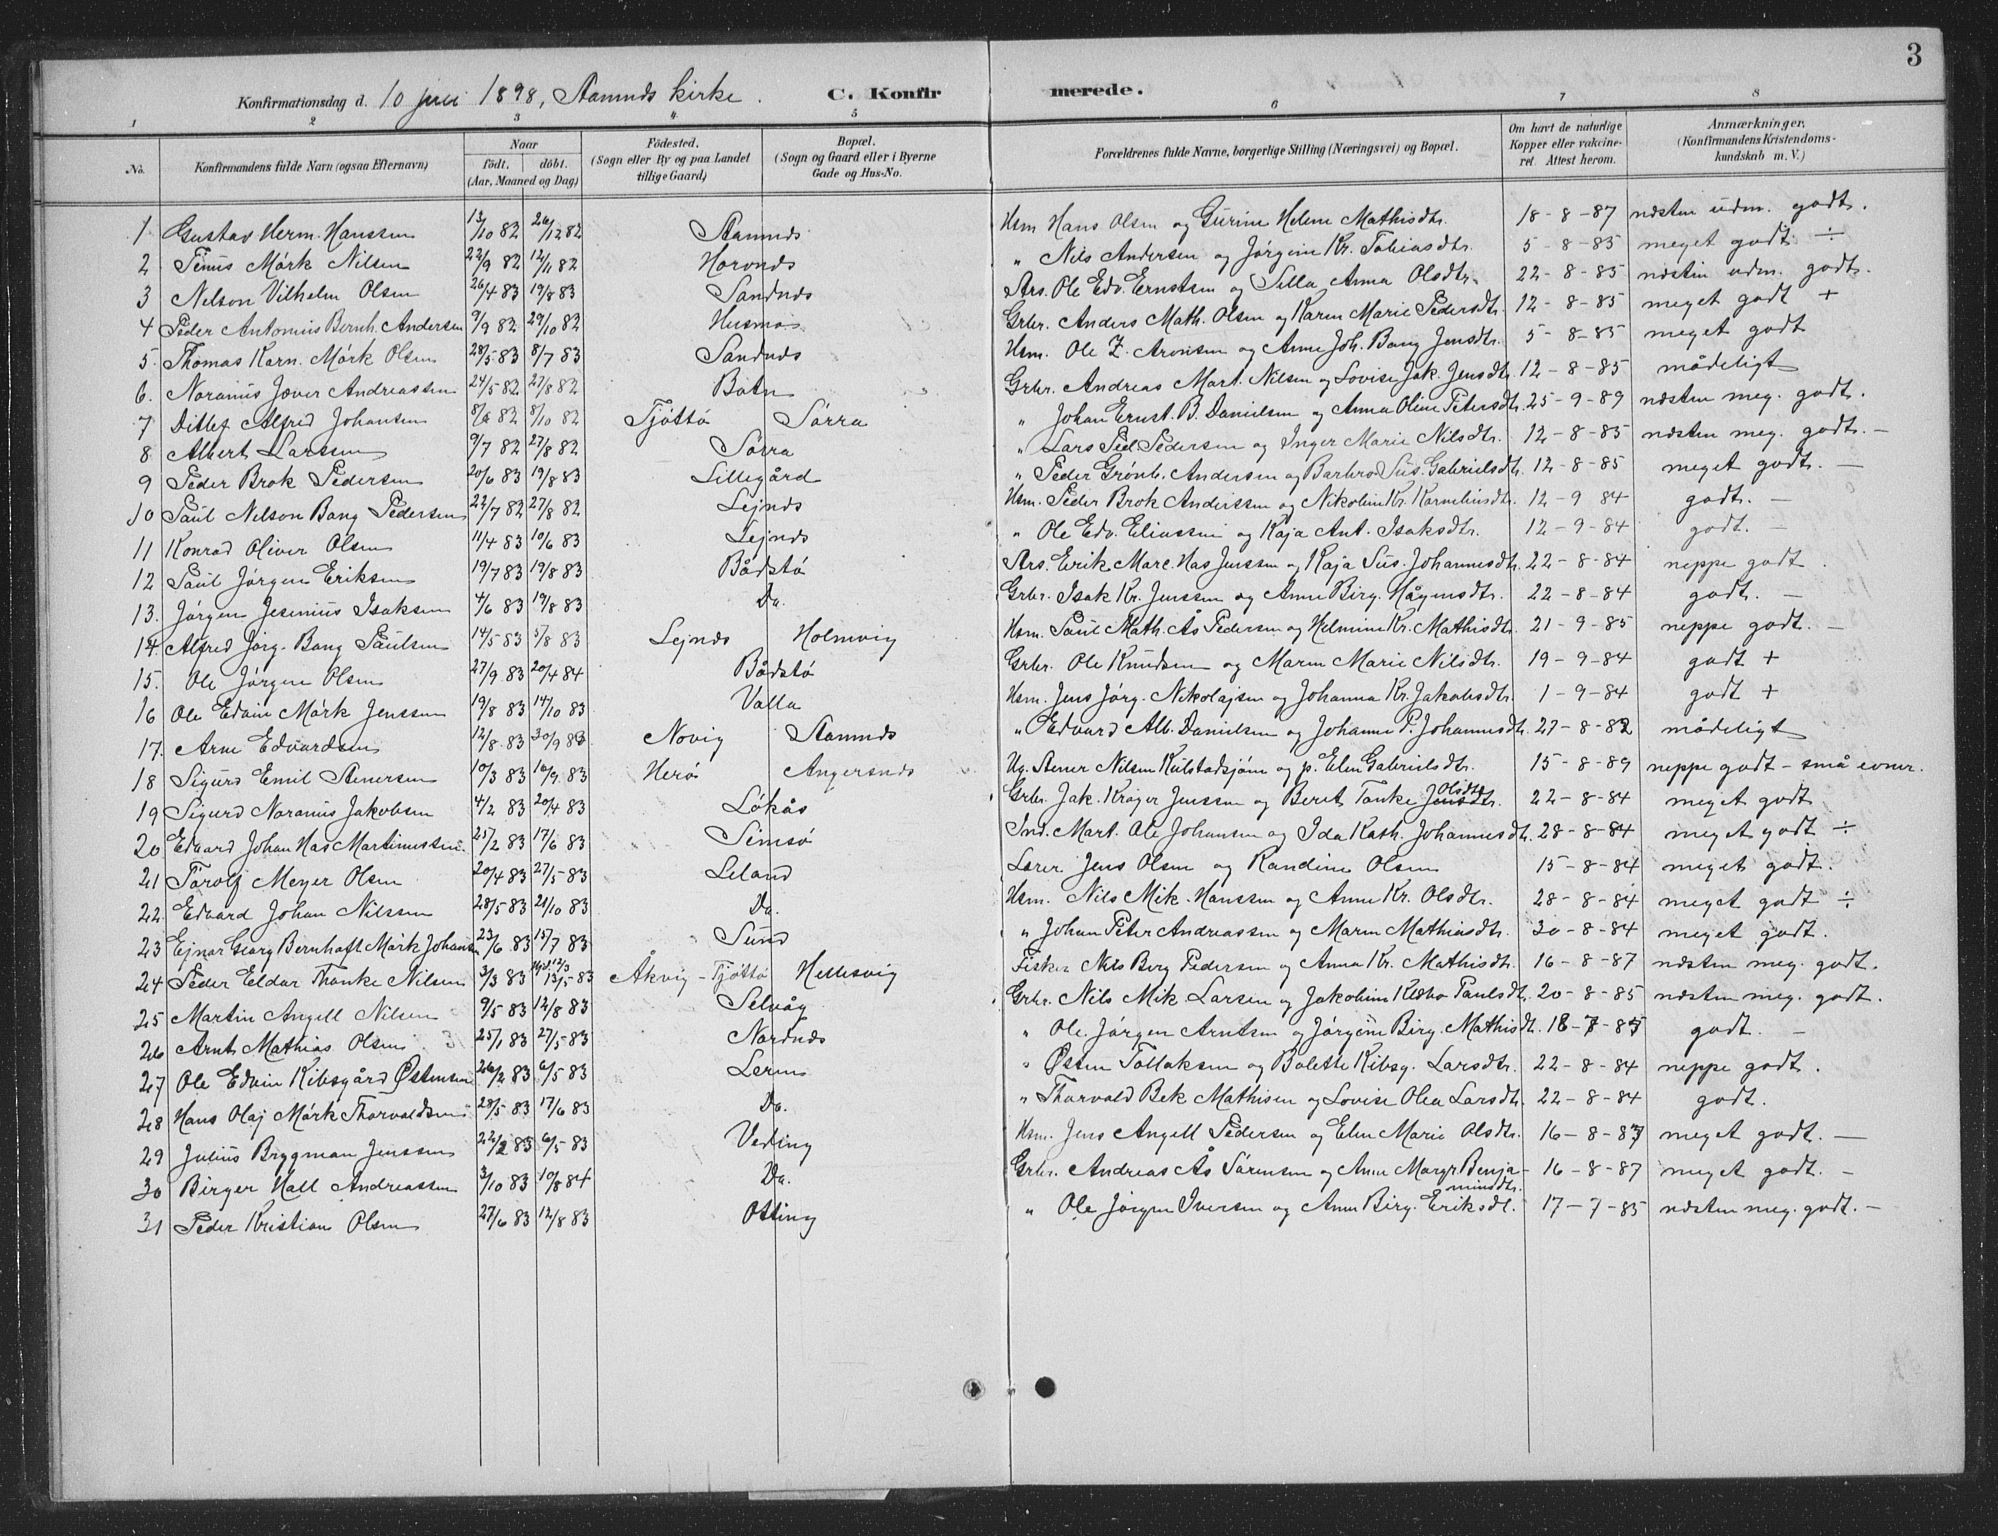 3
Konfirmationsdag d. 10 juli 1898, Stamnds kirke. C. Konfirmerede.
1 2 3 4 5 6 7 8
No. Konfirmandens fulde Navn (ogsaa Efternavn) Naar födt. döbt. (Aar, Maaned og Dag) Födested. (Sogn eller By og paa Landet tillige Gaard) Bopæl. (Sogn og Gaard eller i Byerne Gade og Hus-No. Forældrenes fulde Navne, borgerlige Stilling (Næringsvei) og Bopæl. Om havt de naturlige Kopper eller vaccineret. Attest herom. Anmærkninger, (Konfirmandens Kristendomskundskab m. V.)
1 Gustav Herm. Hanssen 13/10 82 26/12 82 Stamnds Hsm Hans Olsen og Gurine Helene Mathisdtr. 18-8-87 næsten udm. godt.
2 Tinus Mörk Nilsen 22/9 82 12/11 82 Horvnds " Nils Andersen og Jørgine Kr. Tobiasdtr. 5-8-85 meget godt ÷
3 Nelson Vilhelm Olsen 26/4 83 19/8 83 Sandnds Ars. Ole Edv. Ernstsen og Silla Anna Olsdtr. 22-8-85 næsten udm. godt.
4 Peder Antonius Bernh. Andersen 9/9 82 29/10 82 Husmo Grbr. Anders Math. Olsen og Karen Marie Pedersdtr. 12-8-85 meget godt +
5 Thomas Korn. Mörk Olsen 28/5 83 8/7 83 Sandnds Hsm. Ole Z. Aronsen og Anne Joh. Bang Jensdtr. 5-8-85 meget godt
6. Noranus Jæver Andreassen 24/5 82 27/8 82 Botn Grbr. Andreas Mart. Nilsen og Lovise Jak. Jensdtr. 12-8-85 mådeligt
7 Ditlef Alfred Johansen 8/6 82 8/10 82 Tjöttö Sörra " Johan Ernst B. Danielsen og Anna Oline Petersdtr. 25-9-89 næsten meg. godt.
8 Albert Larssen 9/7 82 27/8 82 Sörra " Lars Ped. Pedersen og Inger Marie Nilsdtr. 12-8-85 næsten meg. godt. -
9 Peder Brok Pedersen 20/6 83 19/8 83 Lillegård " Peder Grönb. Andersen og Barbro Sus. Gabrielsdtr. 12-8-85 meget godt. -
10 Paul Nelson Bang Pedersen 22/7 82 27/8 82 Lejnds Hsm. Peder Brok Anderssen og Nikoline Kr. Korneliusdtr. 12-9 84 godt. -
11 Konrad Oliver Olsen 11/4 83 10/6 83 Lejnds " Ole Edv. Eliassen og Kaja Ant. Isaksdtr. 12-9-84 godt. -
12 Paul Jörgen Eriksen 19/7 83 19/8 83 Bådstö Ars. Erik Marc. Has Jenssen og Kaja Sus. Johannesdtr. 22-8-84 neppe godt.
13. Jörgen Jesenius Isaksen 4/6 83 19/8 83 Do. Grbr. Isak Kr. Jenssen og Anne Birg. Hågensdtr. 22-8-84 godt. -
14. Alfred Jörg. Bang Paulsen 14/5 83 5/8 83 Lejnds Holmvig Hsm. Paul Math. Ås Pedersen og Helmine Kr. Mathisdtr. 21-9-85 neppe godt. -
15. Ole Jörgen Olsen 27/9 83 20/4 84 Bådstö Grbr. Ole Knudsen og Maren Marie Nilsdtr. 19-9-84 godt +
16 Ole Edvin Mörk Jenssen 19/8 83 14/10 83 Valla Hsm. Jens Jörg. Nikolajsen og Johanna Kr. Jakobsdtr. 1-9-84 godt +
17. Arne Edvardsen 12/8 83 30/9 83 Novig Stamnds " Edvard Alb. Danielsen og Johanne P. Johannesdtr. 27-8-82 mådeligt
18 Sigurd Emil Stenersen 10/3 83 16/9 83 Herö Angersnds Ug. Stener Nilsen Kulstadsjöen og p. Elen Gabrielsdtr. 15-8-89 neppe godt - små evner.
19 Sigurd Noranus Jakobsen 4/2 83 20/4 83 Lökås Grbr. Jak. Kröger Jenssen og Beret Tanke Jensdtr. Olsdtr 22-8-84 meget godt
20 Edvard Johan Has Martinussen 25/2 83 17/6 83 Simsö Ind. Mart. Ole Johansen og Ida Kath. Johannesdtr. 28-8-84 meget godt ÷
21 Torolf Meyer Olsen 20/4 83 27/5-83 Leland Lærer Jens Olsen og Randine Olsen 15-8-84 meget godt.
22. Edvard Johan Nilssen 28/5 83 21/10 83 Do. Hsm. Nils Mik. Hanssen og Anne Kr. Olsdtr. 28-8-84 meget godt ÷
23 Ejnar Georg Bernhoft Mörk Johansen 23/6 83 15/7 83 Sund " Johan Peter Andreassen og Maren Mathiasdtr. 30-8-84 meget godt.
24 Peder Eldar Thanke Nilsen 3/3 83 13/5-83 Åkvig - Tjöttö Hellesvig Fisker Nils Berg Pedersen og Anna Kr. Mathisdtr. 16-8-87 næsten meg. godt.
25 Martin Angell Nilsen 9/5 83 12/8 83 Selvåg Grbr. Nils Mik Larsen og Jakobine Klæbo Paulsdtr. 20-8-85 næsten meg. godt.
26 Arnt Mathias Olsen 25/1 83 27/5-83 Nordnds " Ole Jörgen Arntsen og Jörgine Birg. Mathisdtr. 18-7-85 godt. -
27 Ole Edvin Kibsgård Østensen 26/2 83 6/5 83 Leren " Østen Tollaksen og Bolette Kibsg. Larsdtr. 22-8-84 neppe godt.
28 Hans Olaj Mörk Thorvaldsen 29/5 83 17/6 83 Do. " Thorvald Bek Mathisen og Lovise Olea Larsdtr. 22-8-84 godt.
29 Julius Brygman Jenssen 22/2 83 6/5 83 Veding Hsm. Jens Angell Pedersen og Elen Marie Olsdtr. 16-8-87 meget godt. -
30 Birger Hall Andreassen 3/10 83 10/8 84 Do. Grbr. Andreas Ås Sörensen og Anne Margr. Benjaminsdtr. 16-8-87 meget godt. -
31 Peder Kristian Olsen 27/6 83 12/8 83 Offing " Ole Jörgen Iversen og Anne Birg. Eriksdt. 17-7-85 næsten meg. godt. -